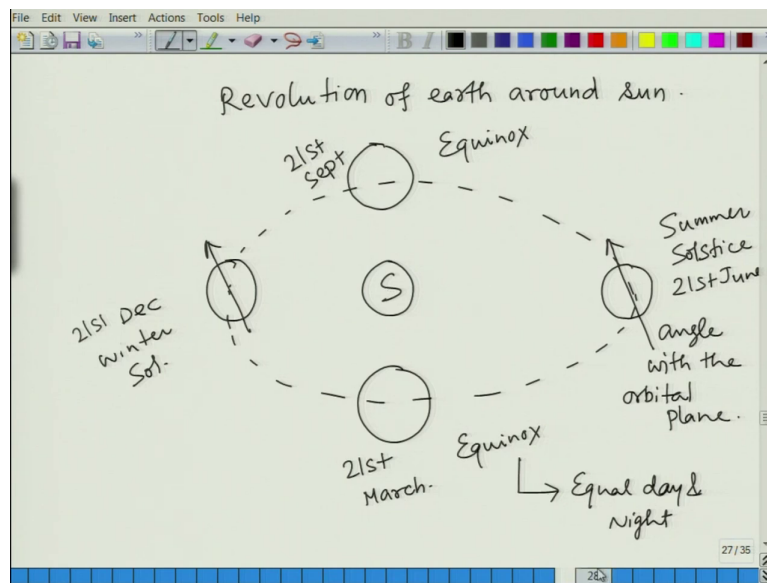 File Edit View Insert Actions Tools Help
B I
Revolution of earth around sun.
21st
Sept
Equinox
Summer
Solstice
21st June
S
21st Dec
winter
Sol.
angle
with the
orbital
plane.
21st
March.
Equinox
Equal day &
Night
27/35
28